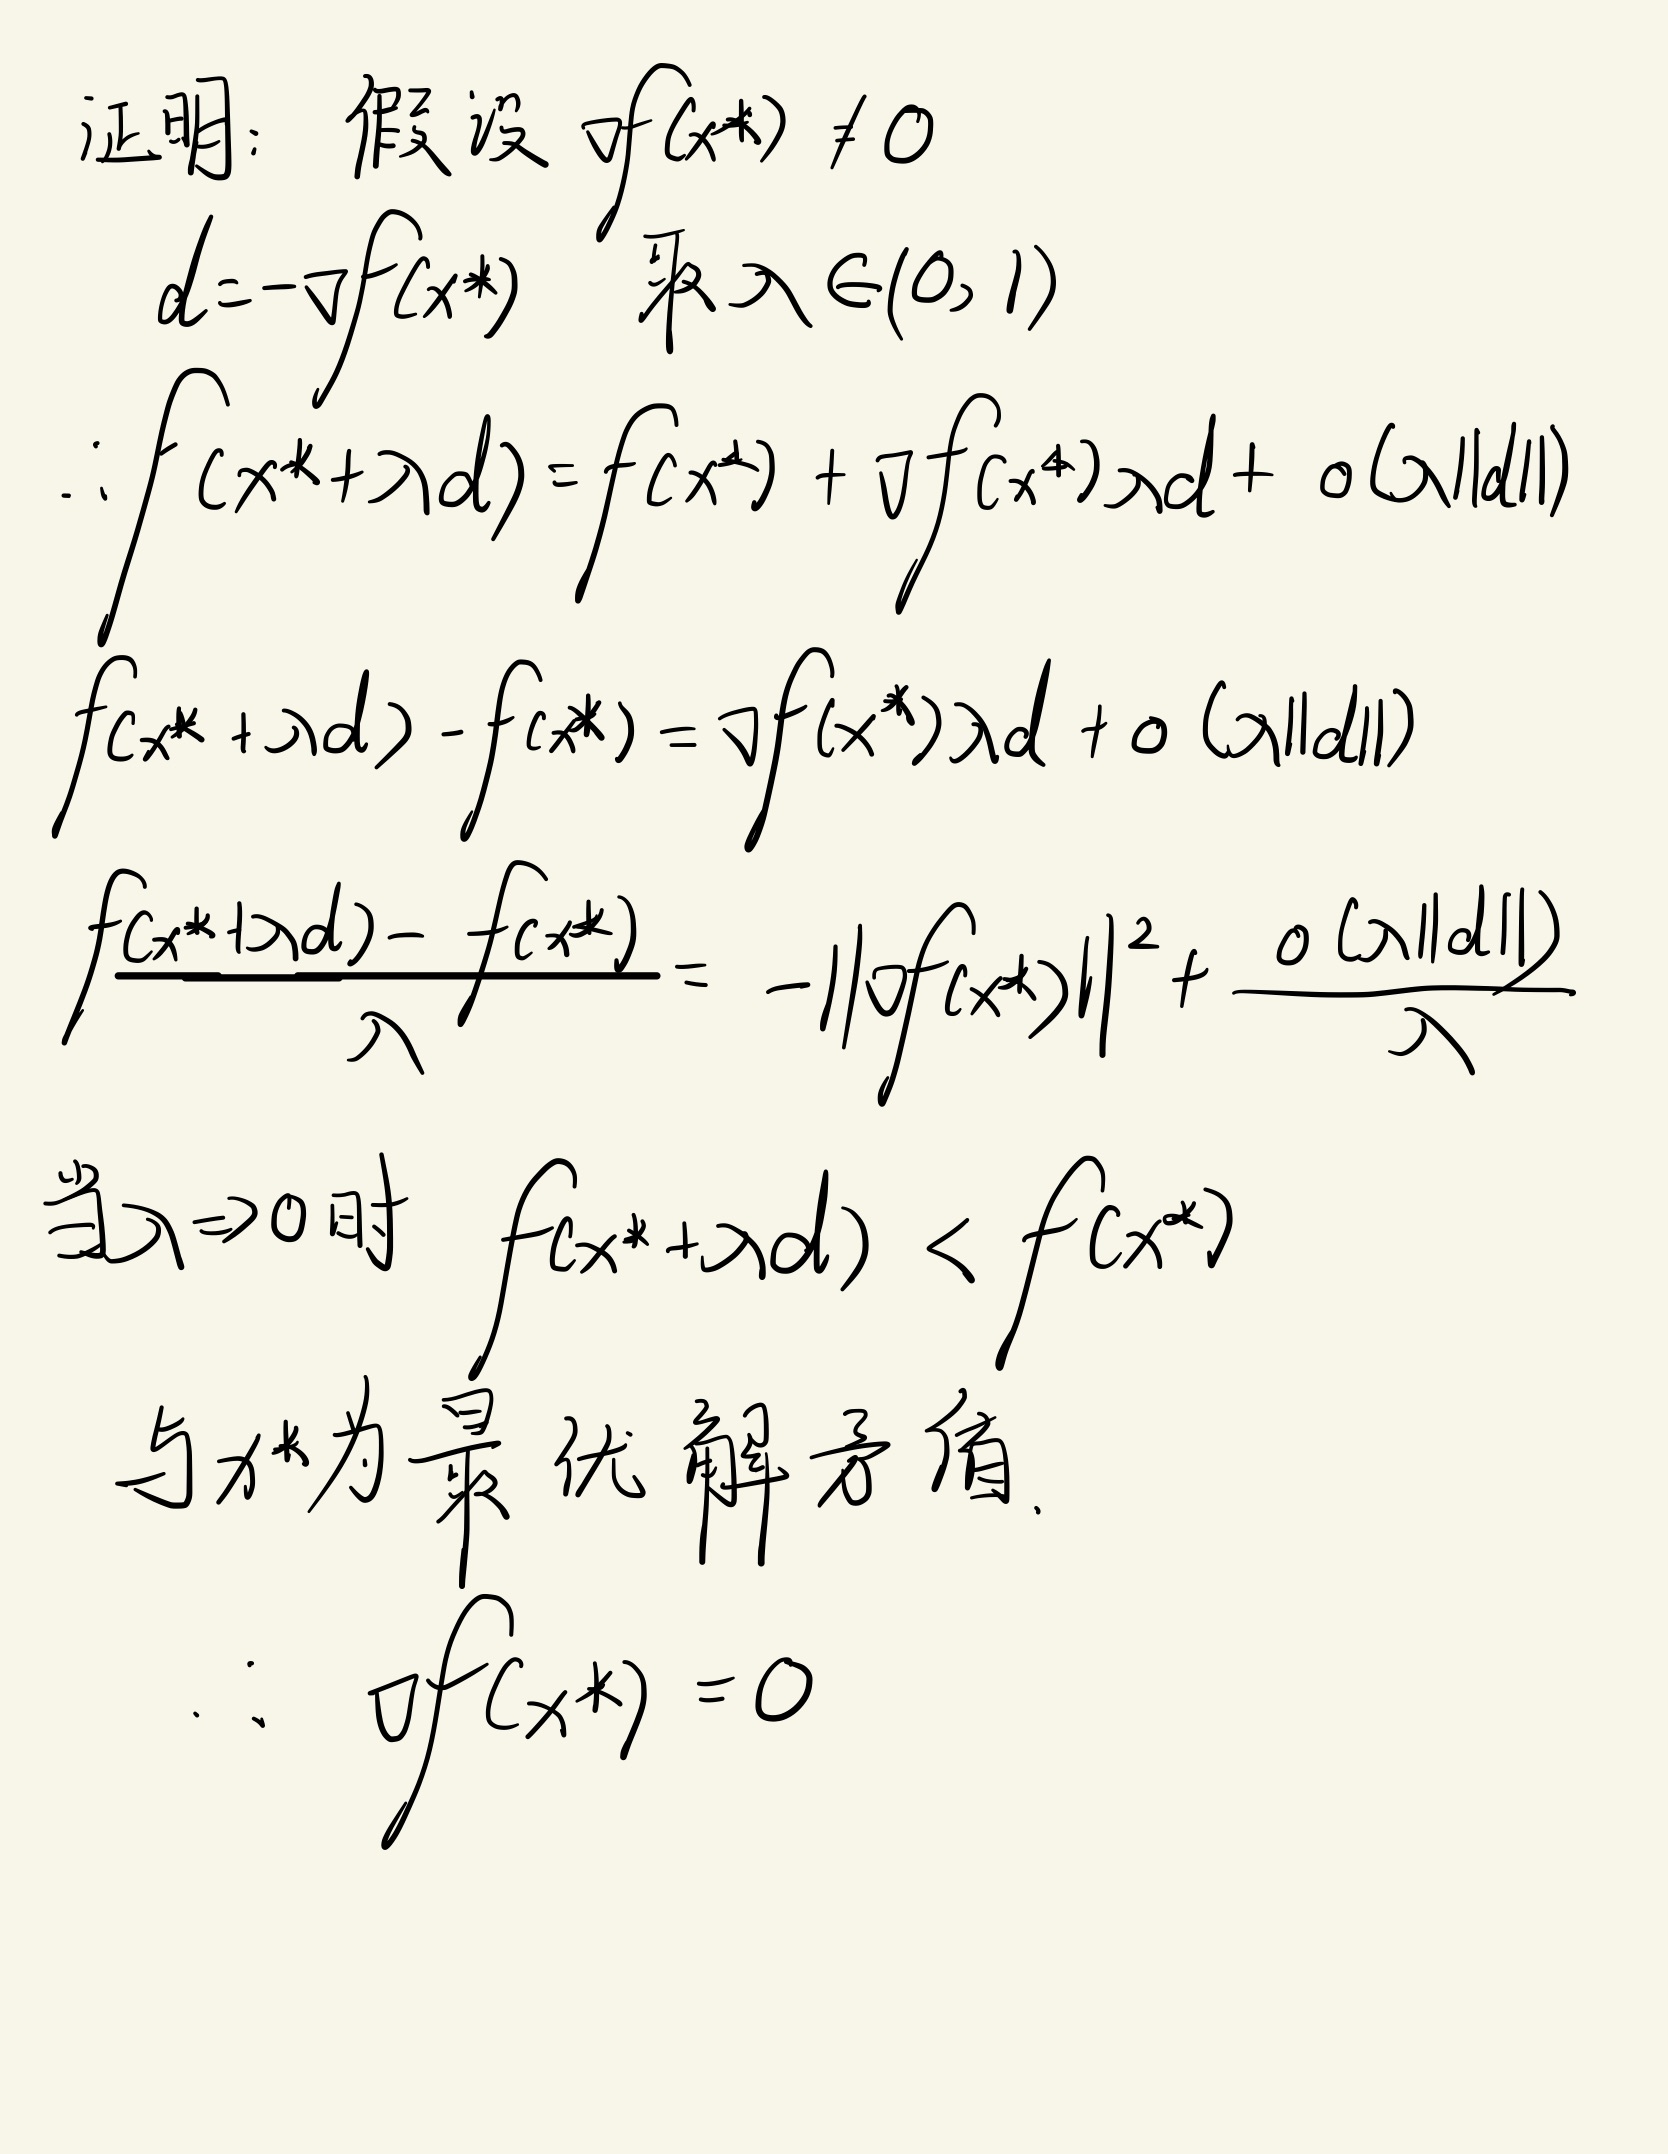 证明: 假设 ∇f(x*) ≠ 0
d = -∇f(x*) 取 λ ∈ (0, 1)
∴ f(x* + λd) = f(x*) + ∇f(x*)λd + o(λ||d||)
f(x* + λd) - f(x*) = ∇f(x*)λd + o(λ||d||)
(f(x* + λd) - f(x*)) / λ = -||∇f(x*)||² + o(λ||d||) / λ
当 λ ⇒ 0 时 f(x* + λd) < f(x*)
与 x* 为最优解矛盾.
∴ ∇f(x*) = 0